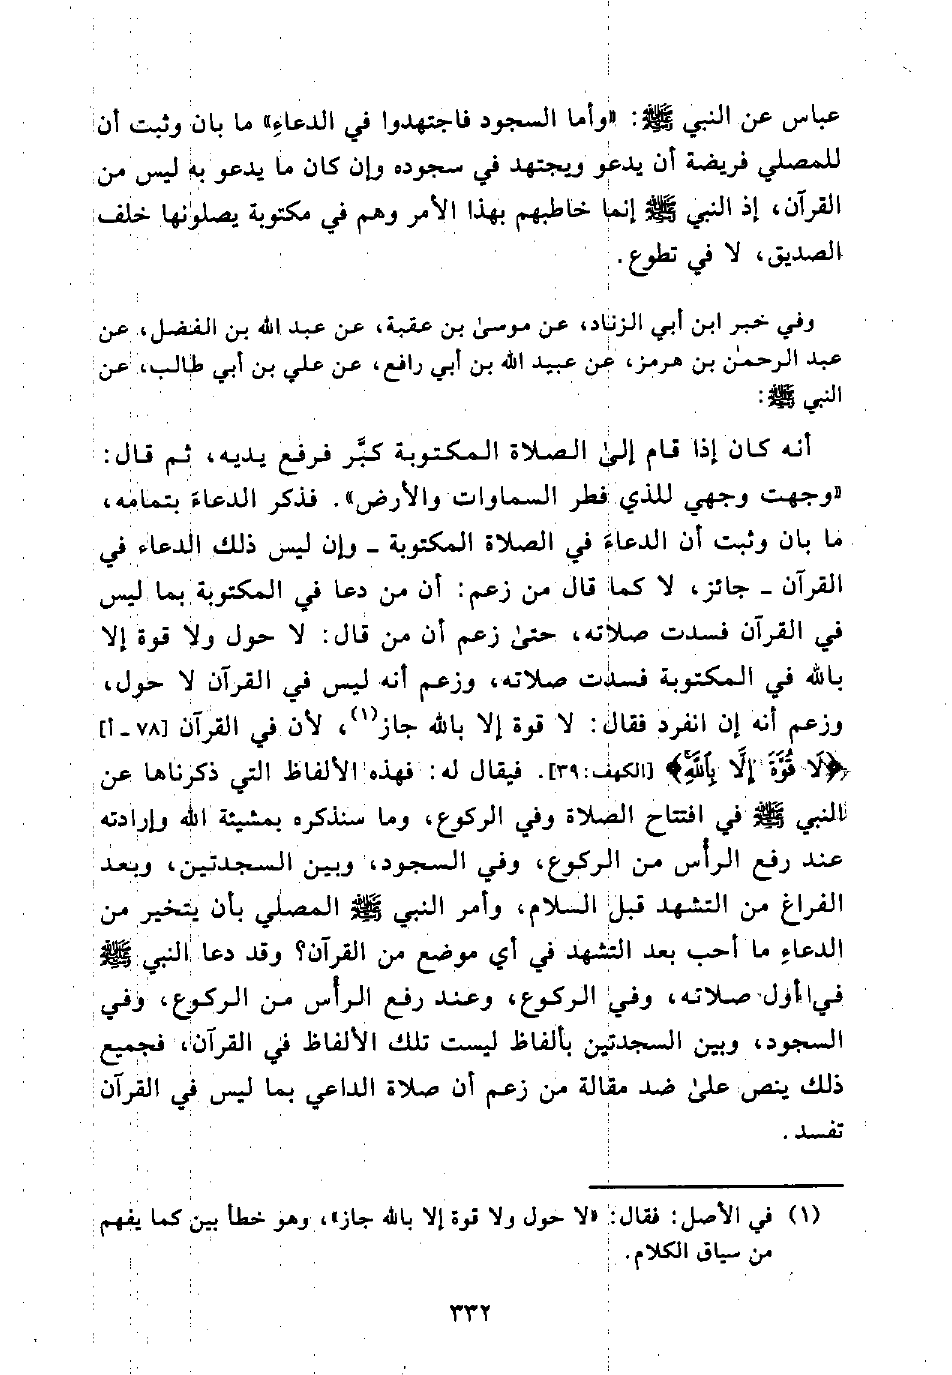 عباس عن النبي ﷺ: «وأما السجود فاجتهدوا في الدعاءِ» ما بان وثبت أن
للمصلي فريضة أن يدعو ويجتهد في سجوده وإن كان ما يدعو به ليس من
القرآن، إذ النبي ﷺ إنما خاطبهم بهذا الأمر وهم في مكتوبة يصلونها خلف
الصديق، لا في تطوع.
وفي خبر ابن أبي الزناد، عن موسىٰ بن عقبة، عن عبد الله بن الفضل، عن
عبد الرحمٰن بن هرمز، عن عبيد الله بن أبي رافع، عن علي بن أبي طالب، عن
النبي ﷺ:
أنه كان إذا قام إلىٰ الصلاة المكتوبة كبَّر فرفع يديه، ثم قال:
«وجهت وجهي للذي فطر السماوات والأرض». فذكر الدعاءَ بتمامه،
ما بان وثبت أن الدعاءَ في الصلاة المكتوبة ـ وإن ليس ذلك الدعاء في
القرآن ـ جائز، لا كما قال من زعم: أن من دعا في المكتوبة بما ليس
في القرآن فسدت صلاته، حتىٰ زعم أن من قال: لا حول ولا قوة إلا
بالله في المكتوبة فسدت صلاته، وزعم أنه ليس في القرآن لا حول،
وزعم أنه إن انفرد فقال: لا قوة إلا بالله جاز(١)، لأن في القرآن [٧٨ ـ أ]
﴿لَا قُوَّةَ إِلَّا بِاللَّهِ﴾ [الكهف: ٣٩]. فيقال له: فهذه الألفاظ التي ذكرناها عن
النبي ﷺ في افتتاح الصلاة وفي الركوع، وما سنذكره بمشيئة الله وإرادته
عند رفع الرأس من الركوع، وفي السجود، وبين السجدتين، وبعد
الفراغ من التشهد قبل السلام، وأمر النبي ﷺ المصلي بأن يتخير من
الدعاءِ ما أحب بعد التشهد في أي موضع من القرآن؟ وقد دعا النبي ﷺ
في أول صلاته، وفي الركوع، وعند رفع الرأس من الركوع، وفي
السجود، وبين السجدتين بألفاظ ليست تلك الألفاظ في القرآن، فجميع
ذلك ينص علىٰ ضد مقالة من زعم أن صلاة الداعي بما ليس في القرآن
تفسد.
(١) في الأصل: فقال: «لا حول ولا قوة إلا بالله جاز»، وهو خطأ بين كما يفهم
من سياق الكلام.
٣٣٢